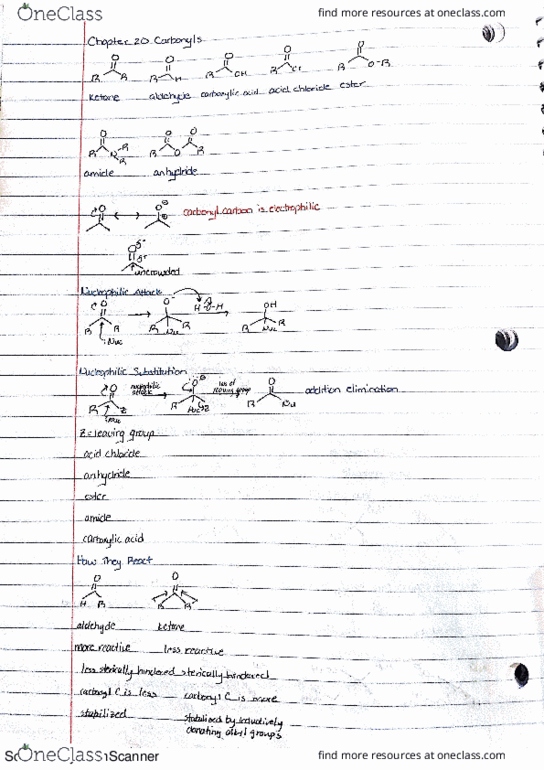 OneClass
find more resources at oneclass.com
Chapter 20 Carbonyls
O O O O O
R R R H R OH R Cl R O-R
ketone aldehyde carboxylic acid acid chloride ester
O O O
R N R R R O R
amide anhydride
carbonyl carbon is electrophilic
uncrowded
Nucleophilic Attack
OH
R R :Nuc R Nuc R H-O-H R Nuc R
Nucleophilic Substitution
nucleophilic attack loss of leaving group addition elimination
R Z :Nuc R Nuc Z R Nu
Z = leaving group
acid chloride
anhydride
ester
amide
carboxylic acid
How They React
O O
H R R R
aldehyde ketone
more reactive less reactive
less sterically hindered sterically hindered
carbonyl C is less carbonyl C is more
stabilized stabilized by inductively
donating alkyl groups
OneClass
Scanner
find more resources at oneclass.com